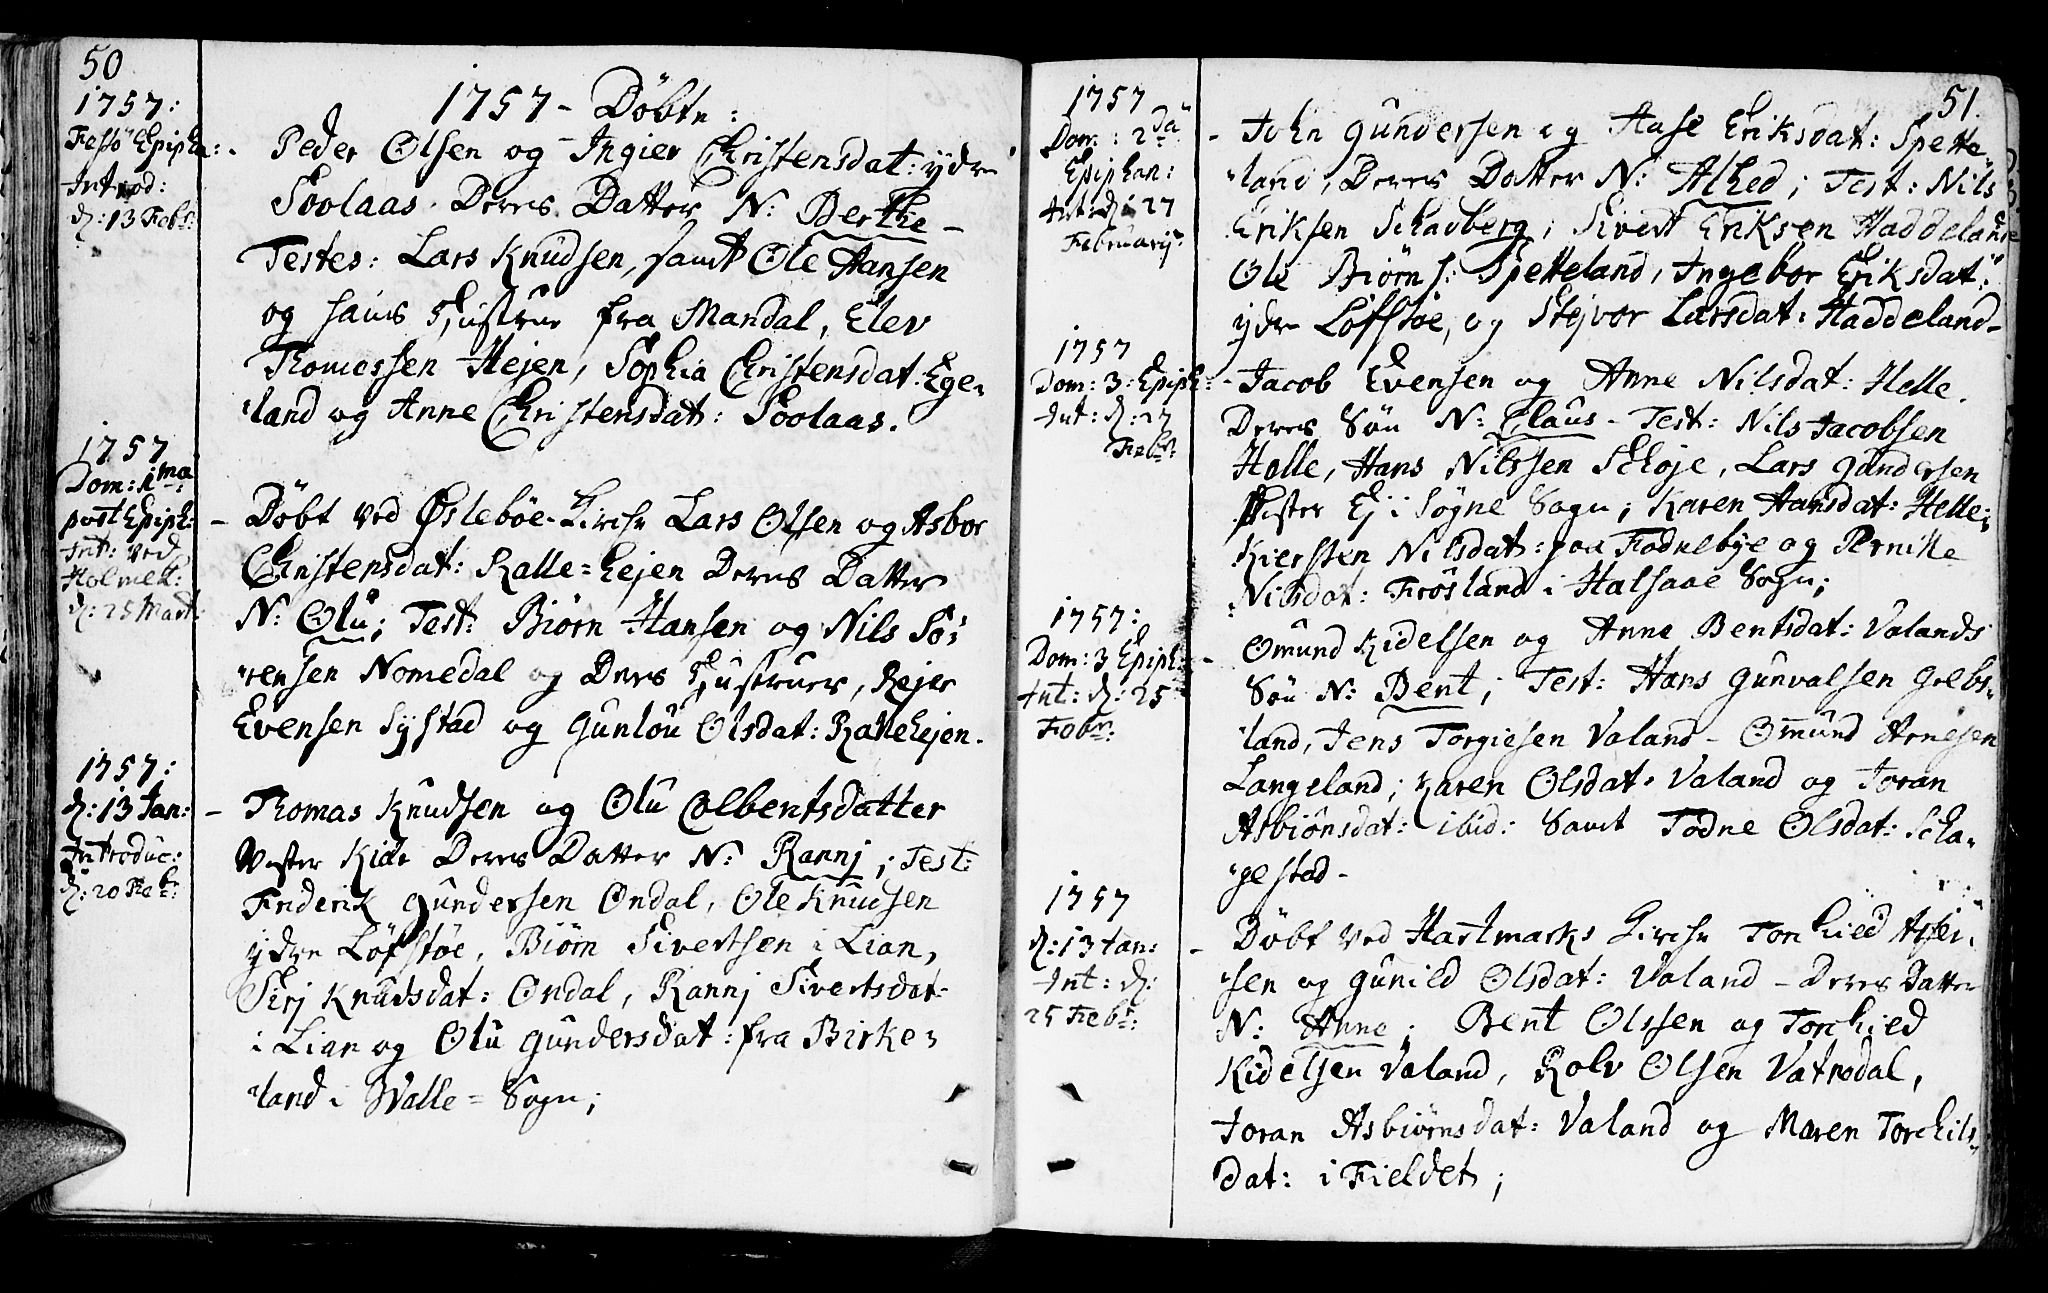 50
1757:
Festo Epipha:
Introd:
d: 13 Febr:
1757 - Döbte:
Peder Olsen og Ingier Christensdat: ydre
Soolaas. Deres Datter N: Berthe -
Testes: Lars Knudsen, samt Ole Hansen
og hans Hustrue fra Mandal, Elev
Thomessen Hejen, Sophia Christensdat: Ege-
land og Anne Christensdat: Soolaas.
1757
Dom: 1ma
post Epiph:
Int: ved
Holmett:
d: 25 Mart:
- Döbt ved Øslebøe-Kirche Lars Olsen og Asbor
Christensdat: Ralle=hejen Deres Datter
N: Olu; Test: Biörn Hansen og Nils Sö-
rensen Nomedal og Deres Hustruer, Rejer
Evensen Systad og Gunlou Olsdat: Rallehejen.
1757:
d: 13 Jan:
Introduc:
d: 20 Feb:
- Thomas Knudsen og Olu Colbentsdatter
Vester Kile Deres Datter N: Rannj; Test:
Friderik Gundersen Ondal, Ole Knudsen
ydre Löfstöe, Biörn Sivertsen i Lian,
Sirj Knudsdat: Ondal, Rannj Sivertsdat:
i Lian og Olu Gundersdat: fra Birke-
land i Walle=Sogn;
51.
1757
Dom: 2da
Epiphan:
Int: d: 27
Februarij
- John Gundersen og Aase Eriksdat: Spette-
land, Deres Datter N: Alhed; Test: Nils
Eriksen Schavberg, Sivert Eriksen Haddeland
Ole Biörns: Spetteland, Ingebor Eriksdat:
ydre Löfstöe, og Stejvor Larsdat: Haddeland-
1757
Dom: 3: Epiph:
Int: d: 27
Febr:
- Jacob Evensen og Anne Nilsdat: Helle.
Deres Sön N: Claus - Test: Nils Jacobsen
Helle, Hans Nilssen Schoje, Lars Gundersen
Vester Ej i Sögne Sogn; Karen Hansdat: Helle;
Kiersten Nilsdat: paa Fodnebye og Pernille
Nilsdat: Frösland i Halsaae Sogn;
1757:
Dom: 3 Epiph:
Int: d: 25
Febr:
- Omund Kidelsen og Anne Bentsdat: Valands
Sön N: Bent; Test: Hans Gunvalsen Grebs-
land, Jens Torgiesen Valand - Omund Arnesen
Langeland; Karen Olsdat: Valand og Joran
Asbiönsdat: ibid: Samt Todne Olsdat: Scha-
gestad -
1757
d: 13 Jan:
Int: d:
25 Feb:
- Döbt ved Hartmarks Kirche Torchied Asser-
sen og Gunild Olsdat: Valand - Deres Datter
N: Anne; Bent Olssen og Torchied
Kidelsen Valand, Rolv Olsen Vatnedal,
Joran Asbiörnsdat: Valand og Maren Torchils-
dat: i Fieldet;